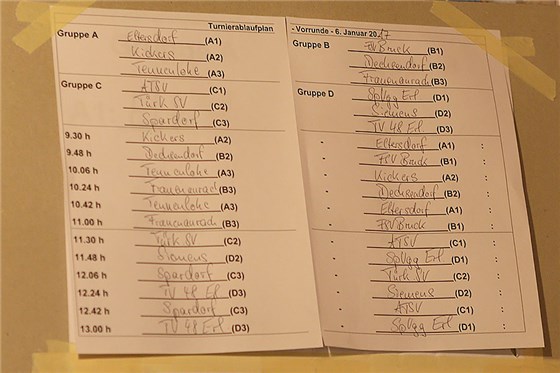 Turnierablaufplan - Vorrunde - 6. Januar 2017
Gruppe A Eltersdorf (A1) Gruppe B FSV Bruck (B1)
Kickers (A2) Dechsendorf (B2)
Tennenlohe (A3) Frauenaurach (B3)
Gruppe C ATSV (C1) Gruppe D SpVgg Erl (D1)
Türk SV (C2) Siemens (D2)
Spardorf (C3) TV 48 Erl (D3)
9.30 h Kickers (A2) - Eltersdorf (A1) :
9.48 h Dechsendorf (B2) - FSV Bruck (B1) :
10.06 h Tennenlohe (A3) - Kickers (A2) :
10.24 h Frauenaurach (B3) - Dechsendorf (B2) :
10.42 h Tennenlohe (A3) - Eltersdorf (A1) :
11.00 h Frauenaurach (B3) - FSV Bruck (B1) :
11.30 h Türk SV (C2) - ATSV (C1) :
11.48 h Siemens (D2) - SpVgg Erl (D1) :
12.06 h Spardorf (C3) - Türk SV (C2) :
12.24 h TV 48 Erl (D3) - Siemens (D2) :
12.42 h Spardorf (C3) - ATSV (C1) :
13.00 h TV 48 Erl (D3) - SpVgg Erl (D1) :